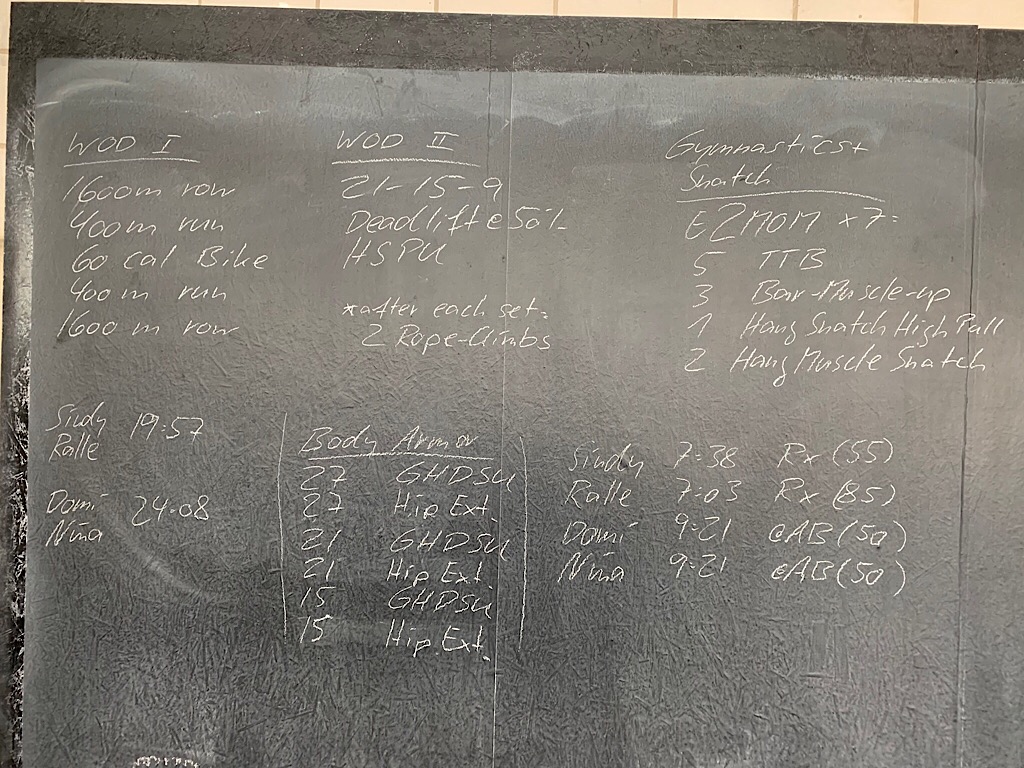 WOD I
1600m row
400m run
60 cal Bike
400m run
1600m row
WOD II
21-15-9
Deadlift @ 50%
HSPU
*after each set:
2 Rope-Climbs
Gymnastics+
Snatch
E2MOM x7:
5 TTB
3 Bar-Muscle-up
1 Hang Snatch High Pull
2 Hang Muscle Snatch
Sindy 19:57
Ralle
Domi 24:08
Nina
Body Armor
27 GHDSU
27 Hip Ext.
21 GHDSU
21 Hip Ext.
15 GHDSU
15 Hip. Ext.
Sindy 7:38 Rx (55)
Ralle 7:03 Rx (85)
Domi 9:21 @AB (50)
Nina 9:21 @AB (50)